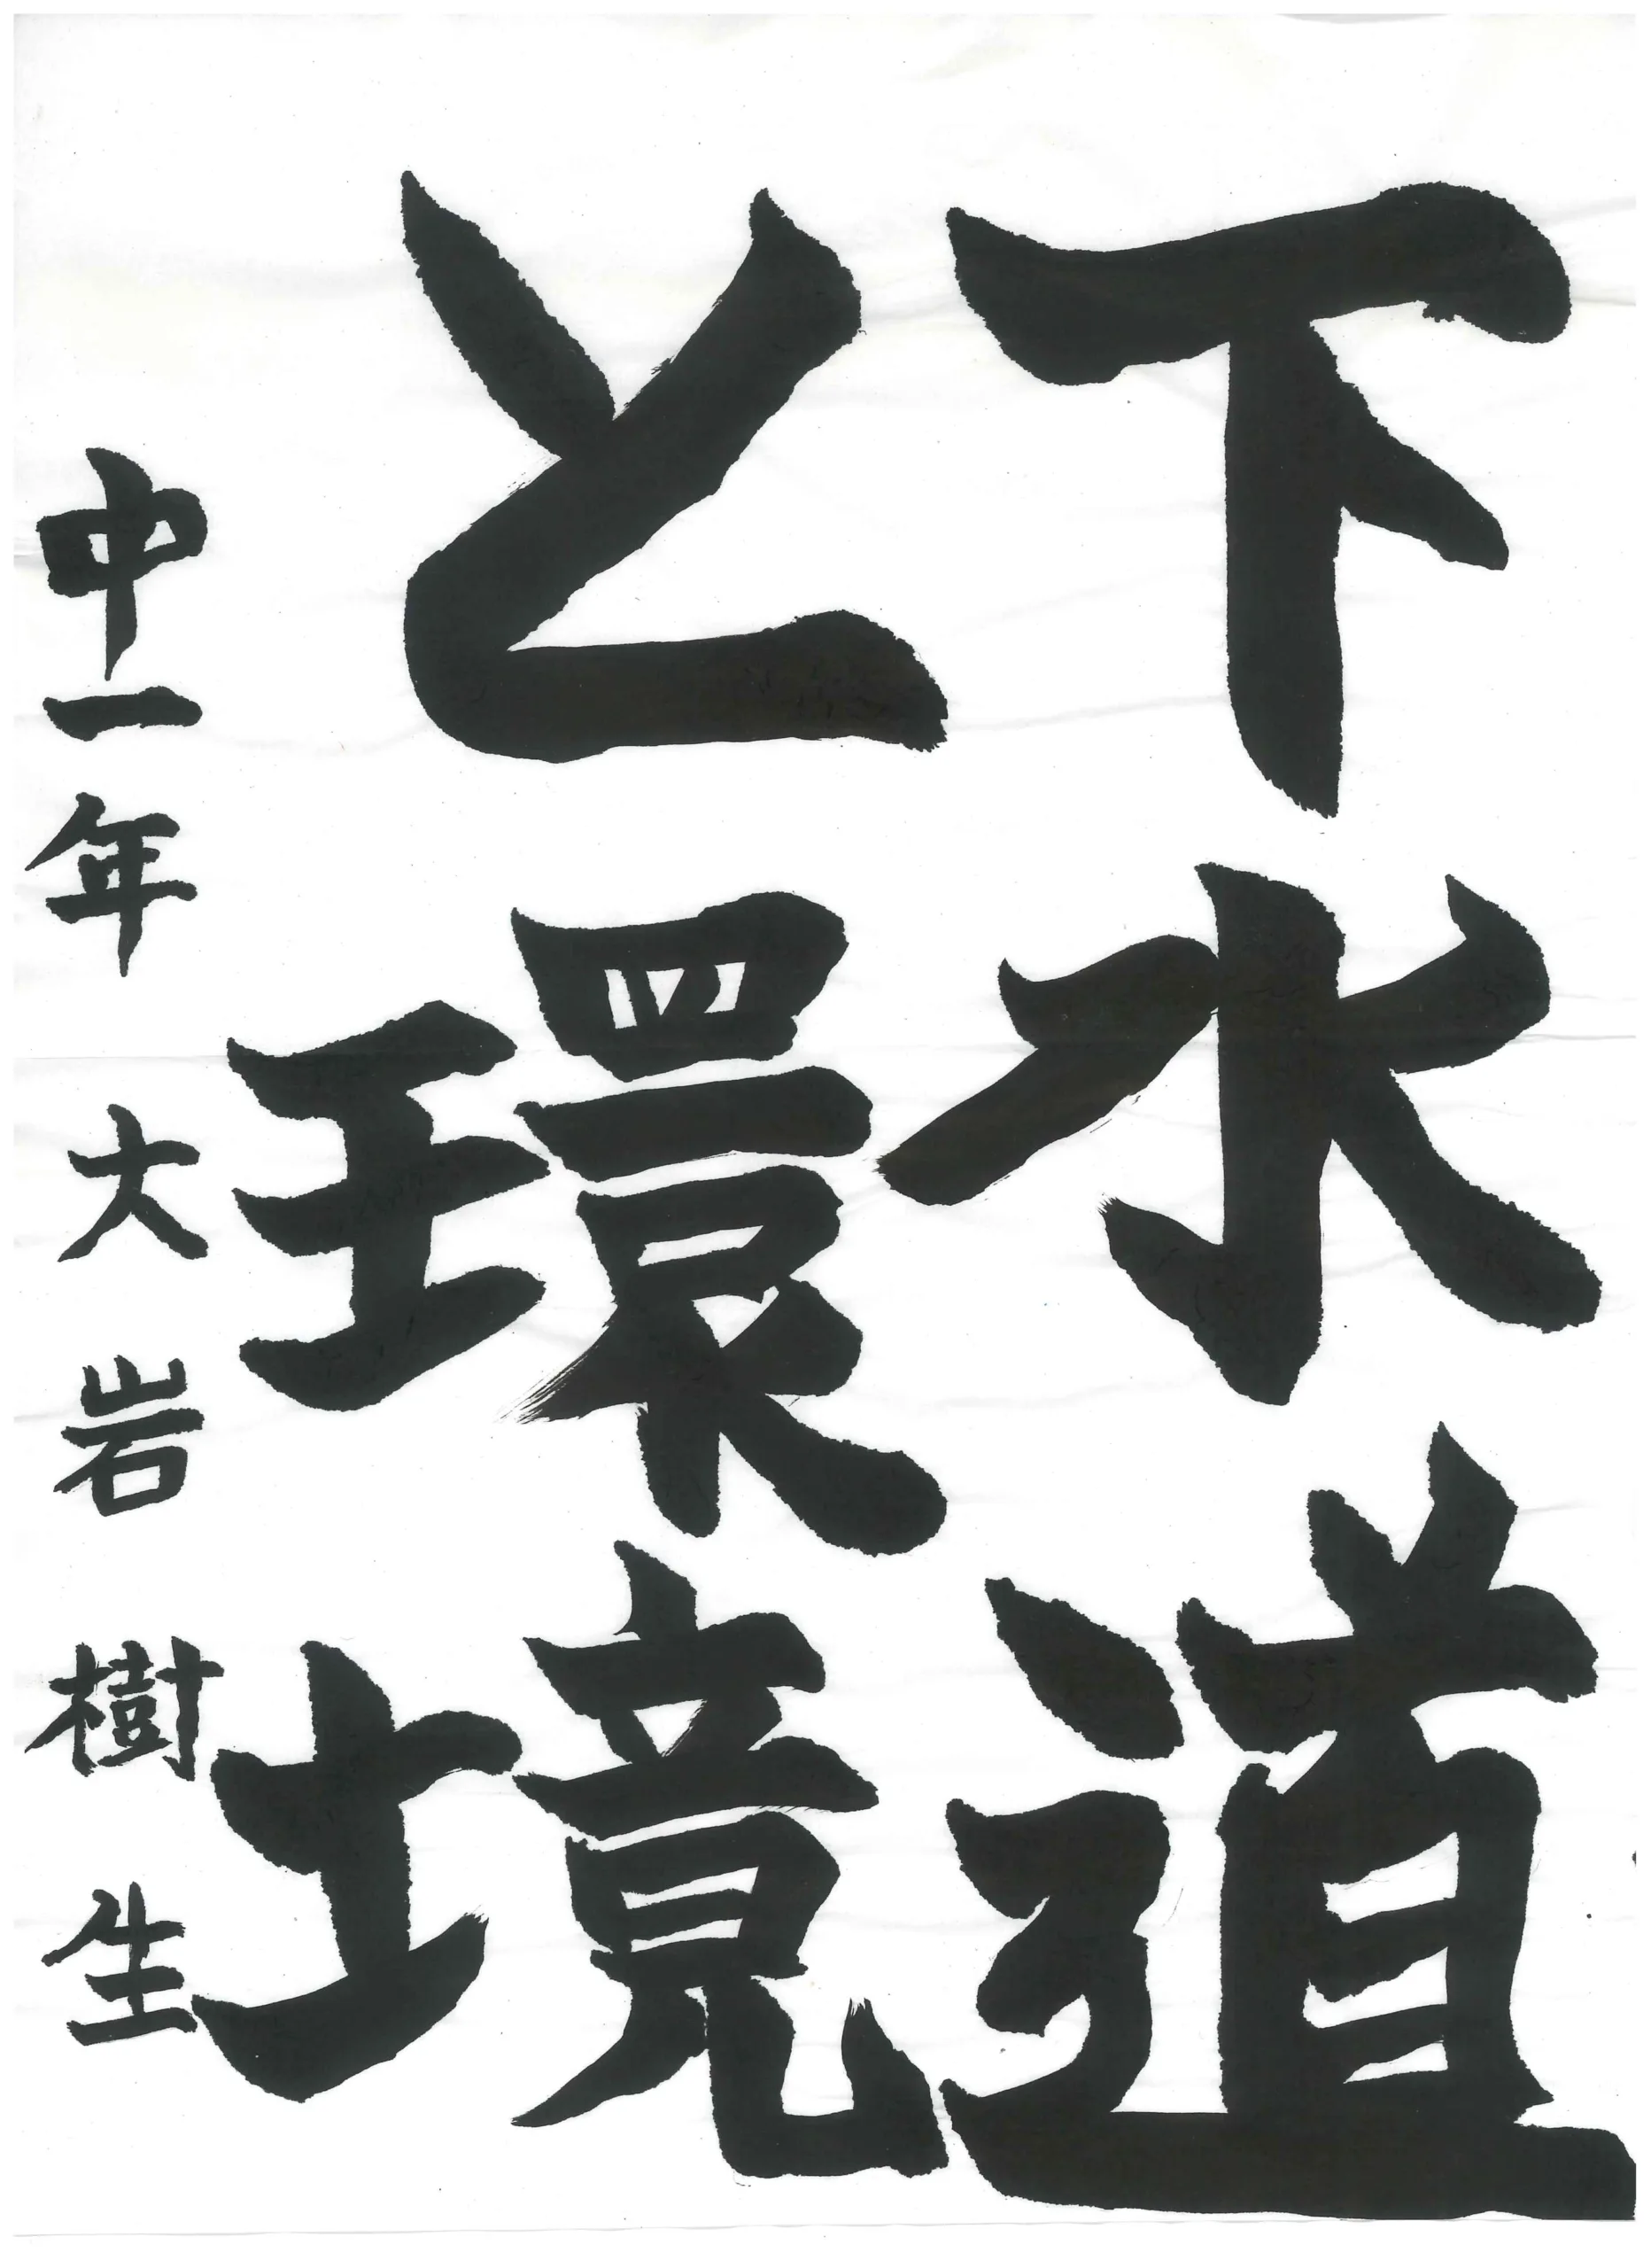 下水道
と環境
中一年 大岩樹生